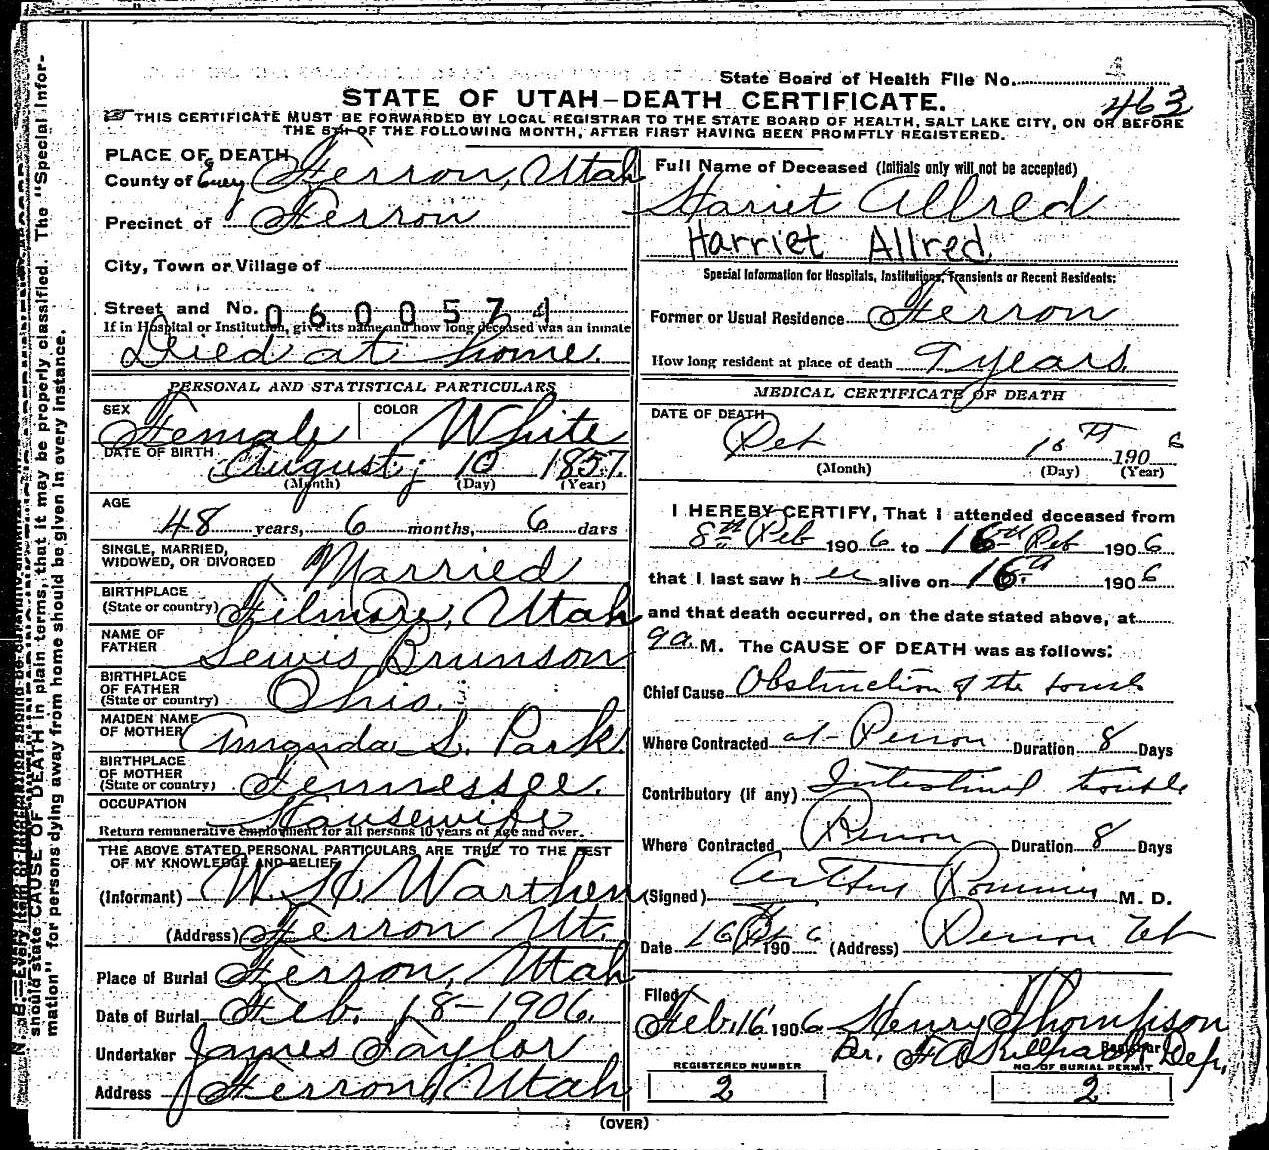 State Board of Health File No.
463
STATE OF UTAH—DEATH CERTIFICATE.
THIS CERTIFICATE MUST BE FORWARDED BY LOCAL REGISTRAR TO THE STATE BOARD OF HEALTH, SALT LAKE CITY, ON OR BEFORE
THE 5TH OF THE FOLLOWING MONTH, AFTER FIRST HAVING BEEN PROMPTLY REGISTERED.
PLACE OF DEATH
County of Emery Ferron, Utah
Precinct of Ferron
City, Town or Village of
Street and No. 0600574
If in Hospital or Institution, give its name and how long deceased was an inmate
Died at home.
PERSONAL AND STATISTICAL PARTICULARS
SEX Female COLOR White
DATE OF BIRTH August 10 1857.
(Month) (Day) (Year)
AGE
48 years, 6 months, 6 days
SINGLE, MARRIED, WIDOWED, OR DIVORCED Married
BIRTHPLACE (State or country) Filmore, Utah
NAME OF FATHER Lewis Brunson
BIRTHPLACE OF FATHER (State or country) Ohio.
MAIDEN NAME OF MOTHER Amanda L. Park.
BIRTHPLACE OF MOTHER (State or country) Tennessee.
OCCUPATION Housewife
Return remunerative employment for all persons 10 years of age and over.
THE ABOVE STATED PERSONAL PARTICULARS ARE TRUE TO THE BEST
OF MY KNOWLEDGE AND BELIEF
(Informant) W. H. Warthen
(Address) Ferron Ut.
Place of Burial Ferron, Utah
Date of Burial Feb. 18-1906.
Undertaker James Taylor
Address Ferron Utah
Full Name of Deceased (Initials only will not be accepted)
Hariet Allred
Harriet Allred
Special Information for Hospitals, Institutions, Transients or Recent Residents:
Former or Usual Residence Ferron
How long resident at place of death 9 years.
MEDICAL CERTIFICATE OF DEATH
DATE OF DEATH
Feb 16th 1906
(Month) (Day) (Year)
I HEREBY CERTIFY, That I attended deceased from
8th Feb 1906 to 16th Feb 1906
that I last saw her alive on 16th 1906
and that death occurred, on the date stated above, at
9 a. M. The CAUSE OF DEATH was as follows:
Chief Cause Obstruction of the bowels
Where Contracted at Ferron Duration 8 Days
Contributory (if any) Intestinal trouble
Where Contracted Ferron Duration 8 Days
(Signed) M. D.
Date 16 Feb 1906 (Address) Ferron Utah
Filed
Feb. 16 1906 Henry Thompson
Registrar
Dr. Dep.
REGISTERED NUMBER
2
NO. OF BURIAL PERMIT
2
(OVER)
should state CAUSE OF DEATH in plain terms, that it may be properly classified. The "Special Infor-
mation" for persons dying away from home should be given in every instance.